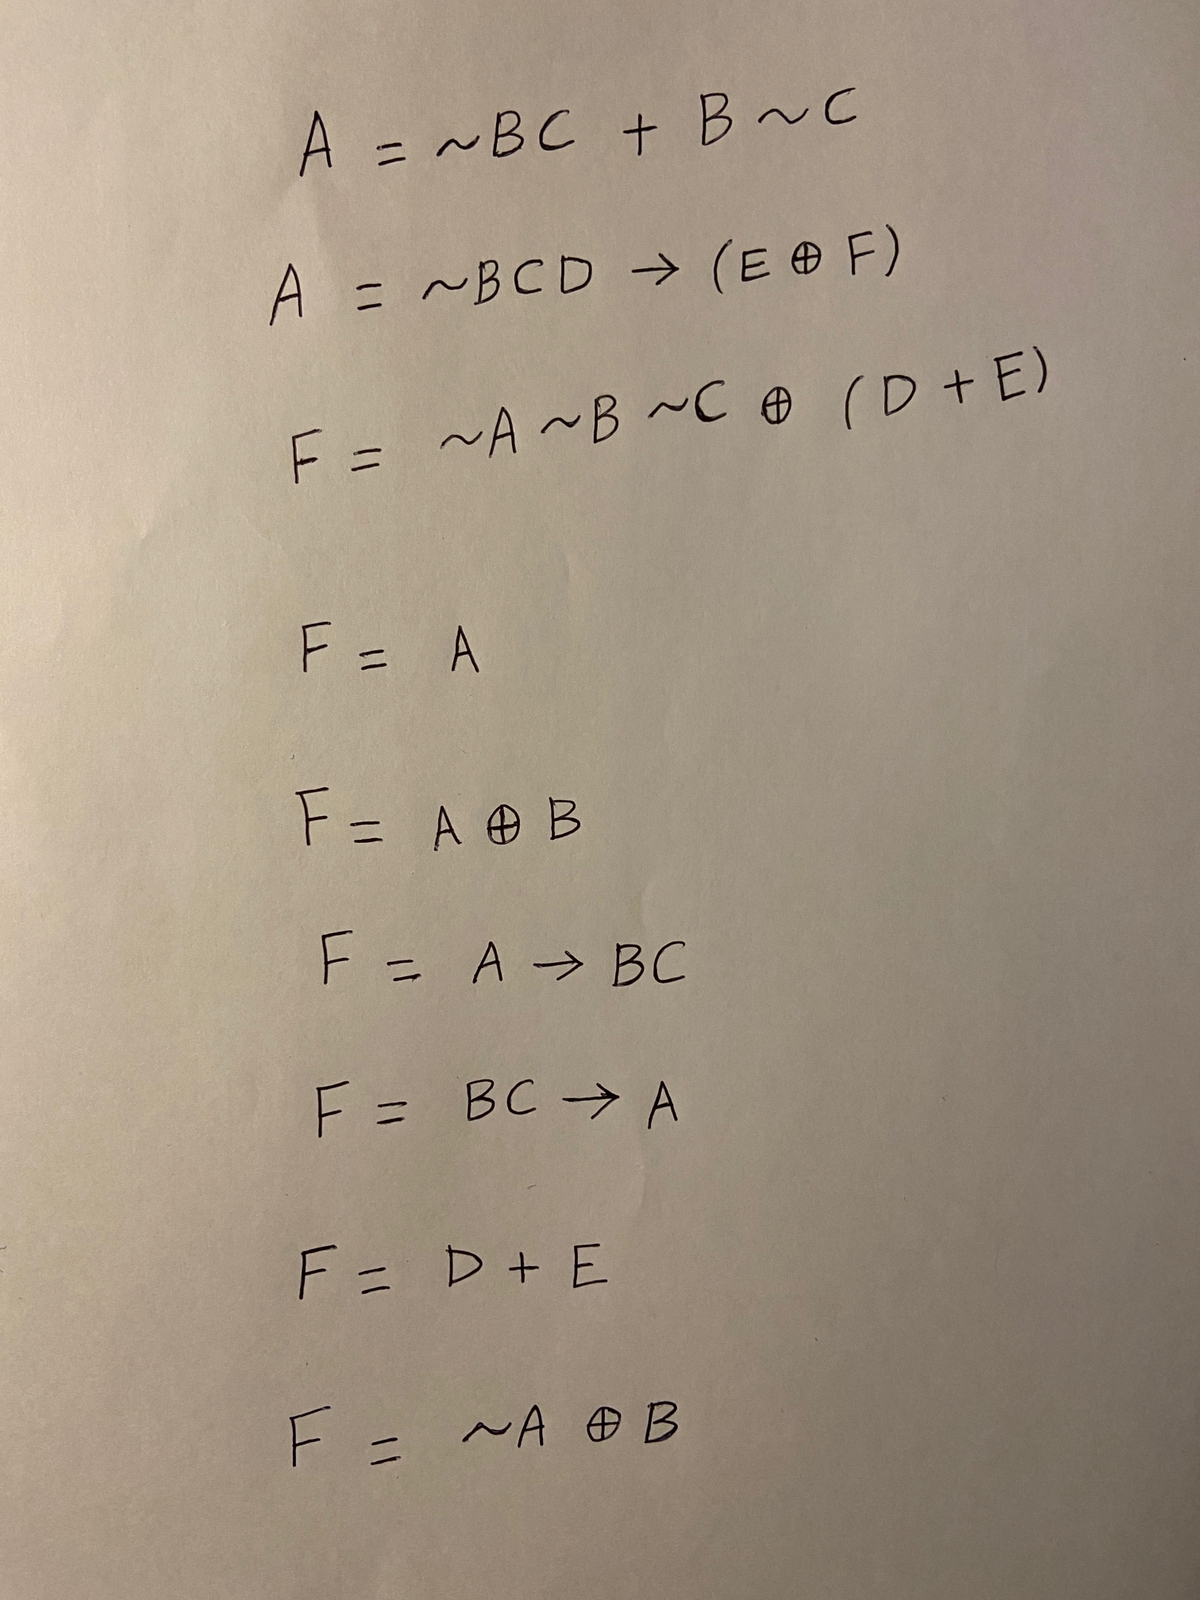 A = ~BC + B~C
A = ~BCD → (E ⊕ F)
F = ~A~B~C ⊕ (D + E)
F = A
F = A ⊕ B
F = A → BC
F = BC → A
F = D + E
F = ~A ⊕ B